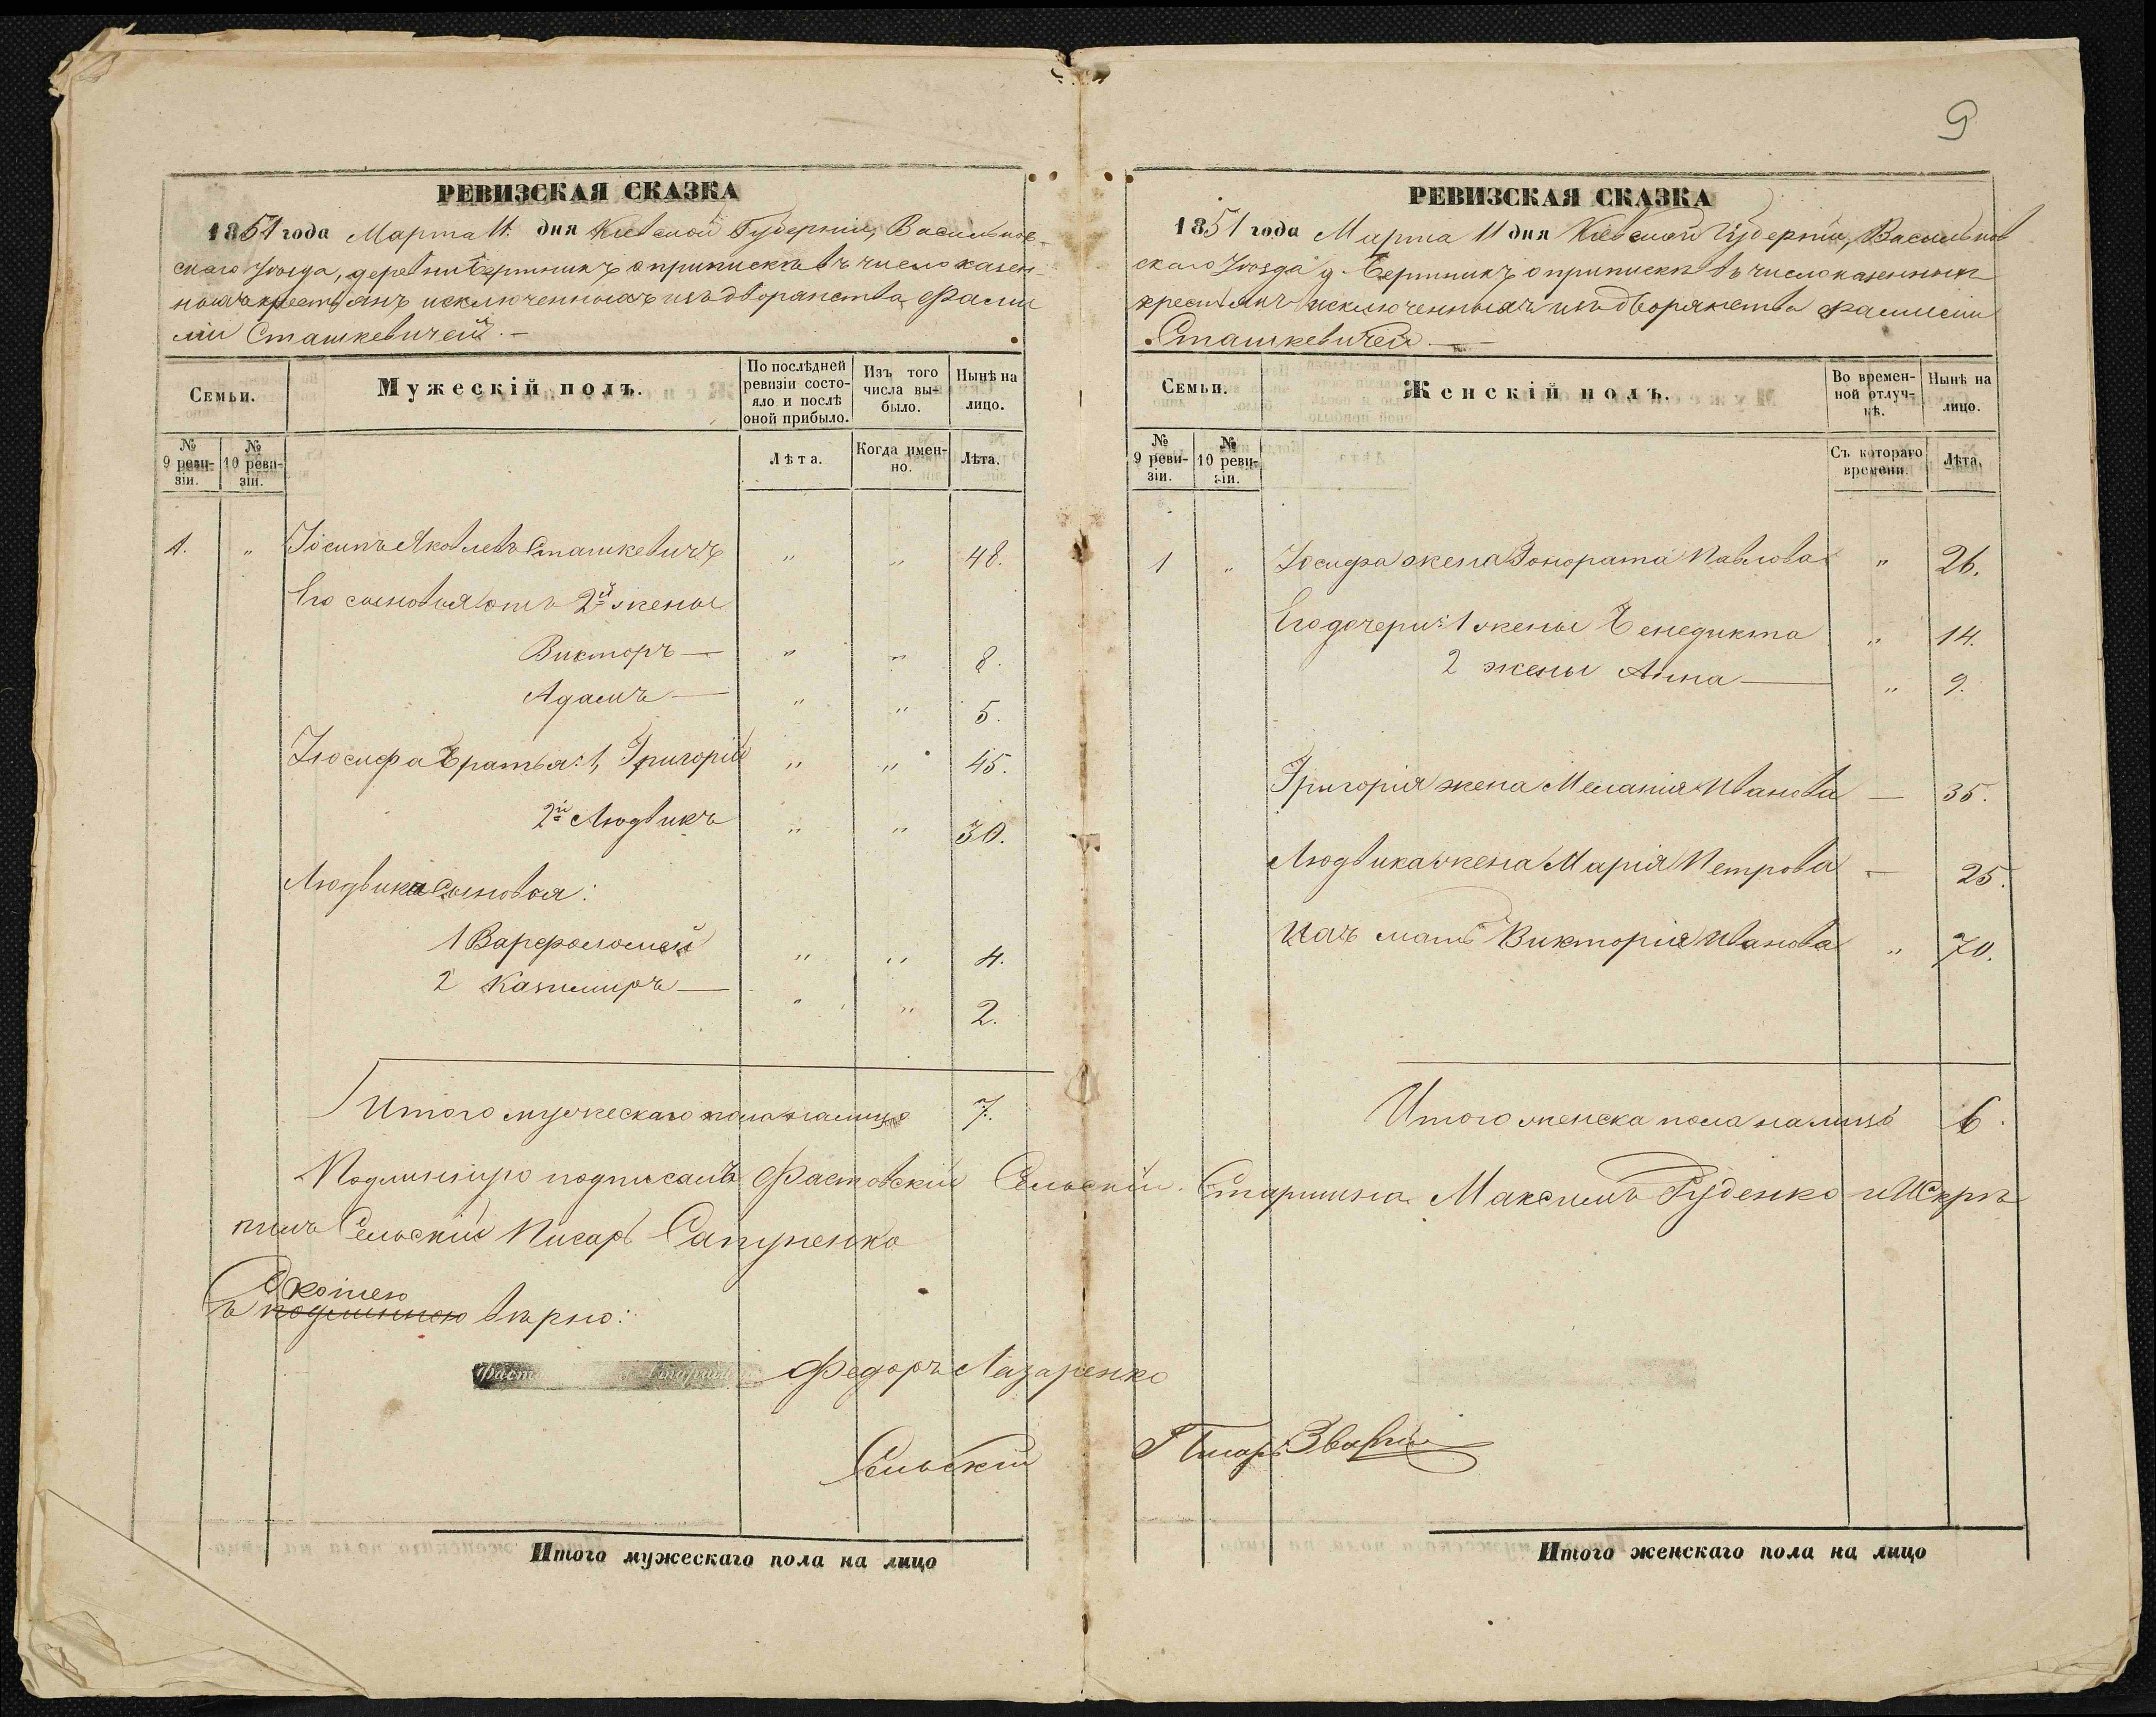 9
РЕВИЗСКАЯ СКАЗКА
1851 года Марта 11. дня Кіевской Губерніи, Васильков-
скаго Уѣзда, деревни Бертникъ о припискѣ въ число казен-
ныхъ крестьянъ исключенныхъ изъ дворянства фами
ліи Сташкевичей. —
Семьи.
Мужескій полъ.
По послѣдней
ревизіи состо-
яло и послѣ
оной прибыло.
Изъ того
числа вы-
было.
Нынѣ на
лицо.
№
9 реви-
зіи.
№
10 реви-
зіи.
Лѣта.
Когда имен-
но.
Лѣта.
1. " Іосипъ Яковлевъ Сташкевичъ " " 48.
Его сыновья отъ 2й жены
Викторъ — " " 8.
Адамъ — " " 5.
Іосифа братья: 1, Григорій " " 45.
2й Людвикъ " " 30.
Людвика сыновья:
1 Варфоломей " " 4.
2 Казимиръ — " " 2.
Итого мужескаго пола налицо 7.
РЕВИЗСКАЯ СКАЗКА
1851 года Марта 11 дня Кіевской Губерніи, Васильков
скаго Уѣзда д. Бертникъ о припискѣ въ число казенныхъ
крестьянъ исключенныхъ изъ дворянства фамиліи
Сташкевичей. —
Семьи.
Женскій полъ.
Во времен-
ной отлуч-
кѣ.
Нынѣ на
лицо.
№
9 реви-
зіи.
№
10 реви-
зіи.
Съ котораго
времени.
Лѣта.
1 " Іосифа жена Гонората Павлова " 26.
Его дочери: 1 жены Бенедикта " 14.
2 жены Анна — " 9.
Григорія жена Меланія Иванова — 35.
Людвика жена Марія Петрова — 25.
Ихъ мать Викторія Иванова " 70.
Итого женска пола налицо 6.
Подлинную подписалъ Фастовскій Сельскій Старшина Максимъ Руденко и Скрѣ
пилъ Сельскій Писарь Сапуненко
Съ копіею
подлинною вѣрно:
Федоръ Лазаренко
Сельскій Писарь
Итого мужескаго пола на лицо
Итого женскаго пола на лицо